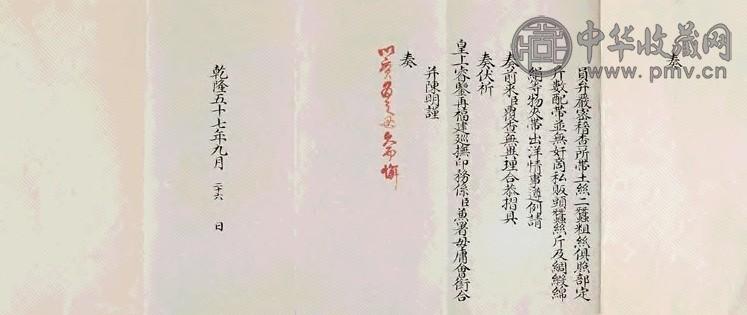 中华收藏网
www.pmv.cn
奏
員弁嚴密稽查所帶土絲二蠶粗絲俱照部定
斤數配帶並無奸商私販頭蠶絲斤及綢緞綿
絹等物夾帶出洋情事遵例請
奏前來臣覆查無異理合恭摺具
奏伏祈
皇上睿鑒再福建巡撫印務係臣兼署毋庸會銜合
并陳明謹
奏
以實為之毋久而懈
乾隆五十七年九月二十六日